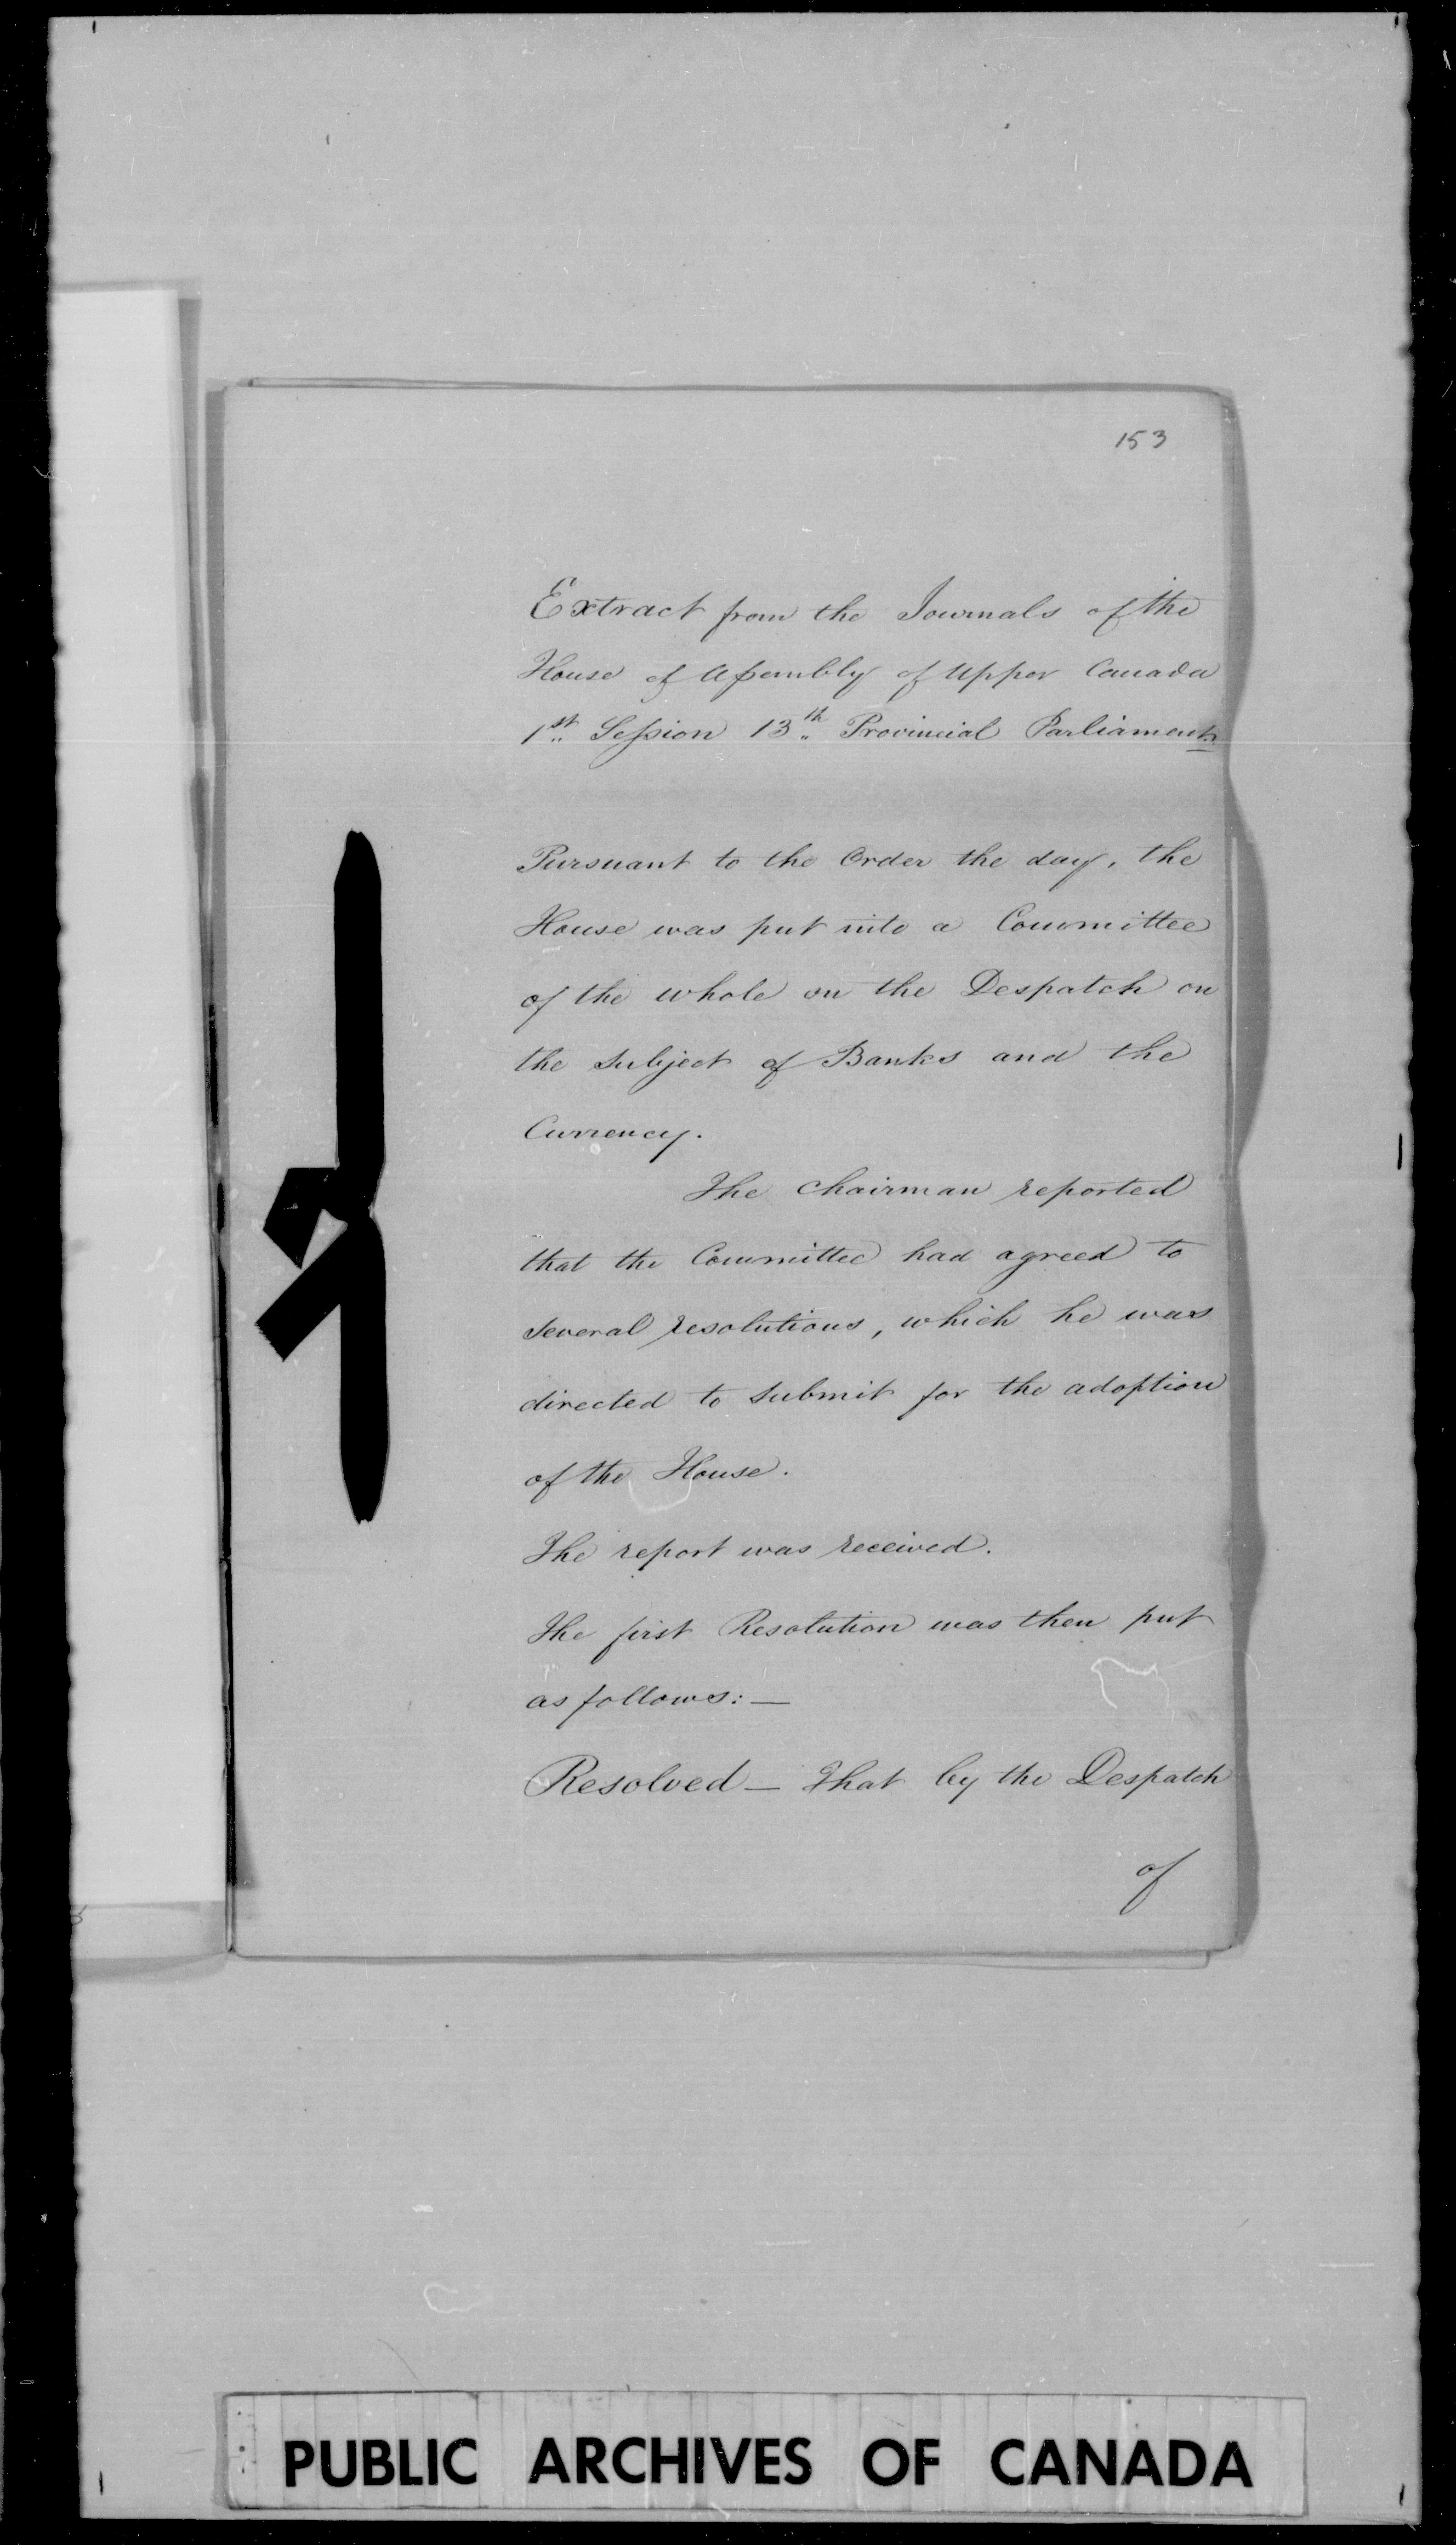 153
Extract from the Journals of the
House of Assembly of Upper Canada
1st Session 13th Provincial Parliament.
Pursuant to the Order the day, the
House was put into a Committee
of the whole on the Despatch on
the subject of Banks and the
Currency.
The Chairman reported
that the Committee had agreed to
several resolutions, which he was
directed to submit for the adoption
of the House.
The report was received.
The first Resolution was then put
as follows:—
Resolved — That by the Despatch
of
PUBLIC ARCHIVES OF CANADA